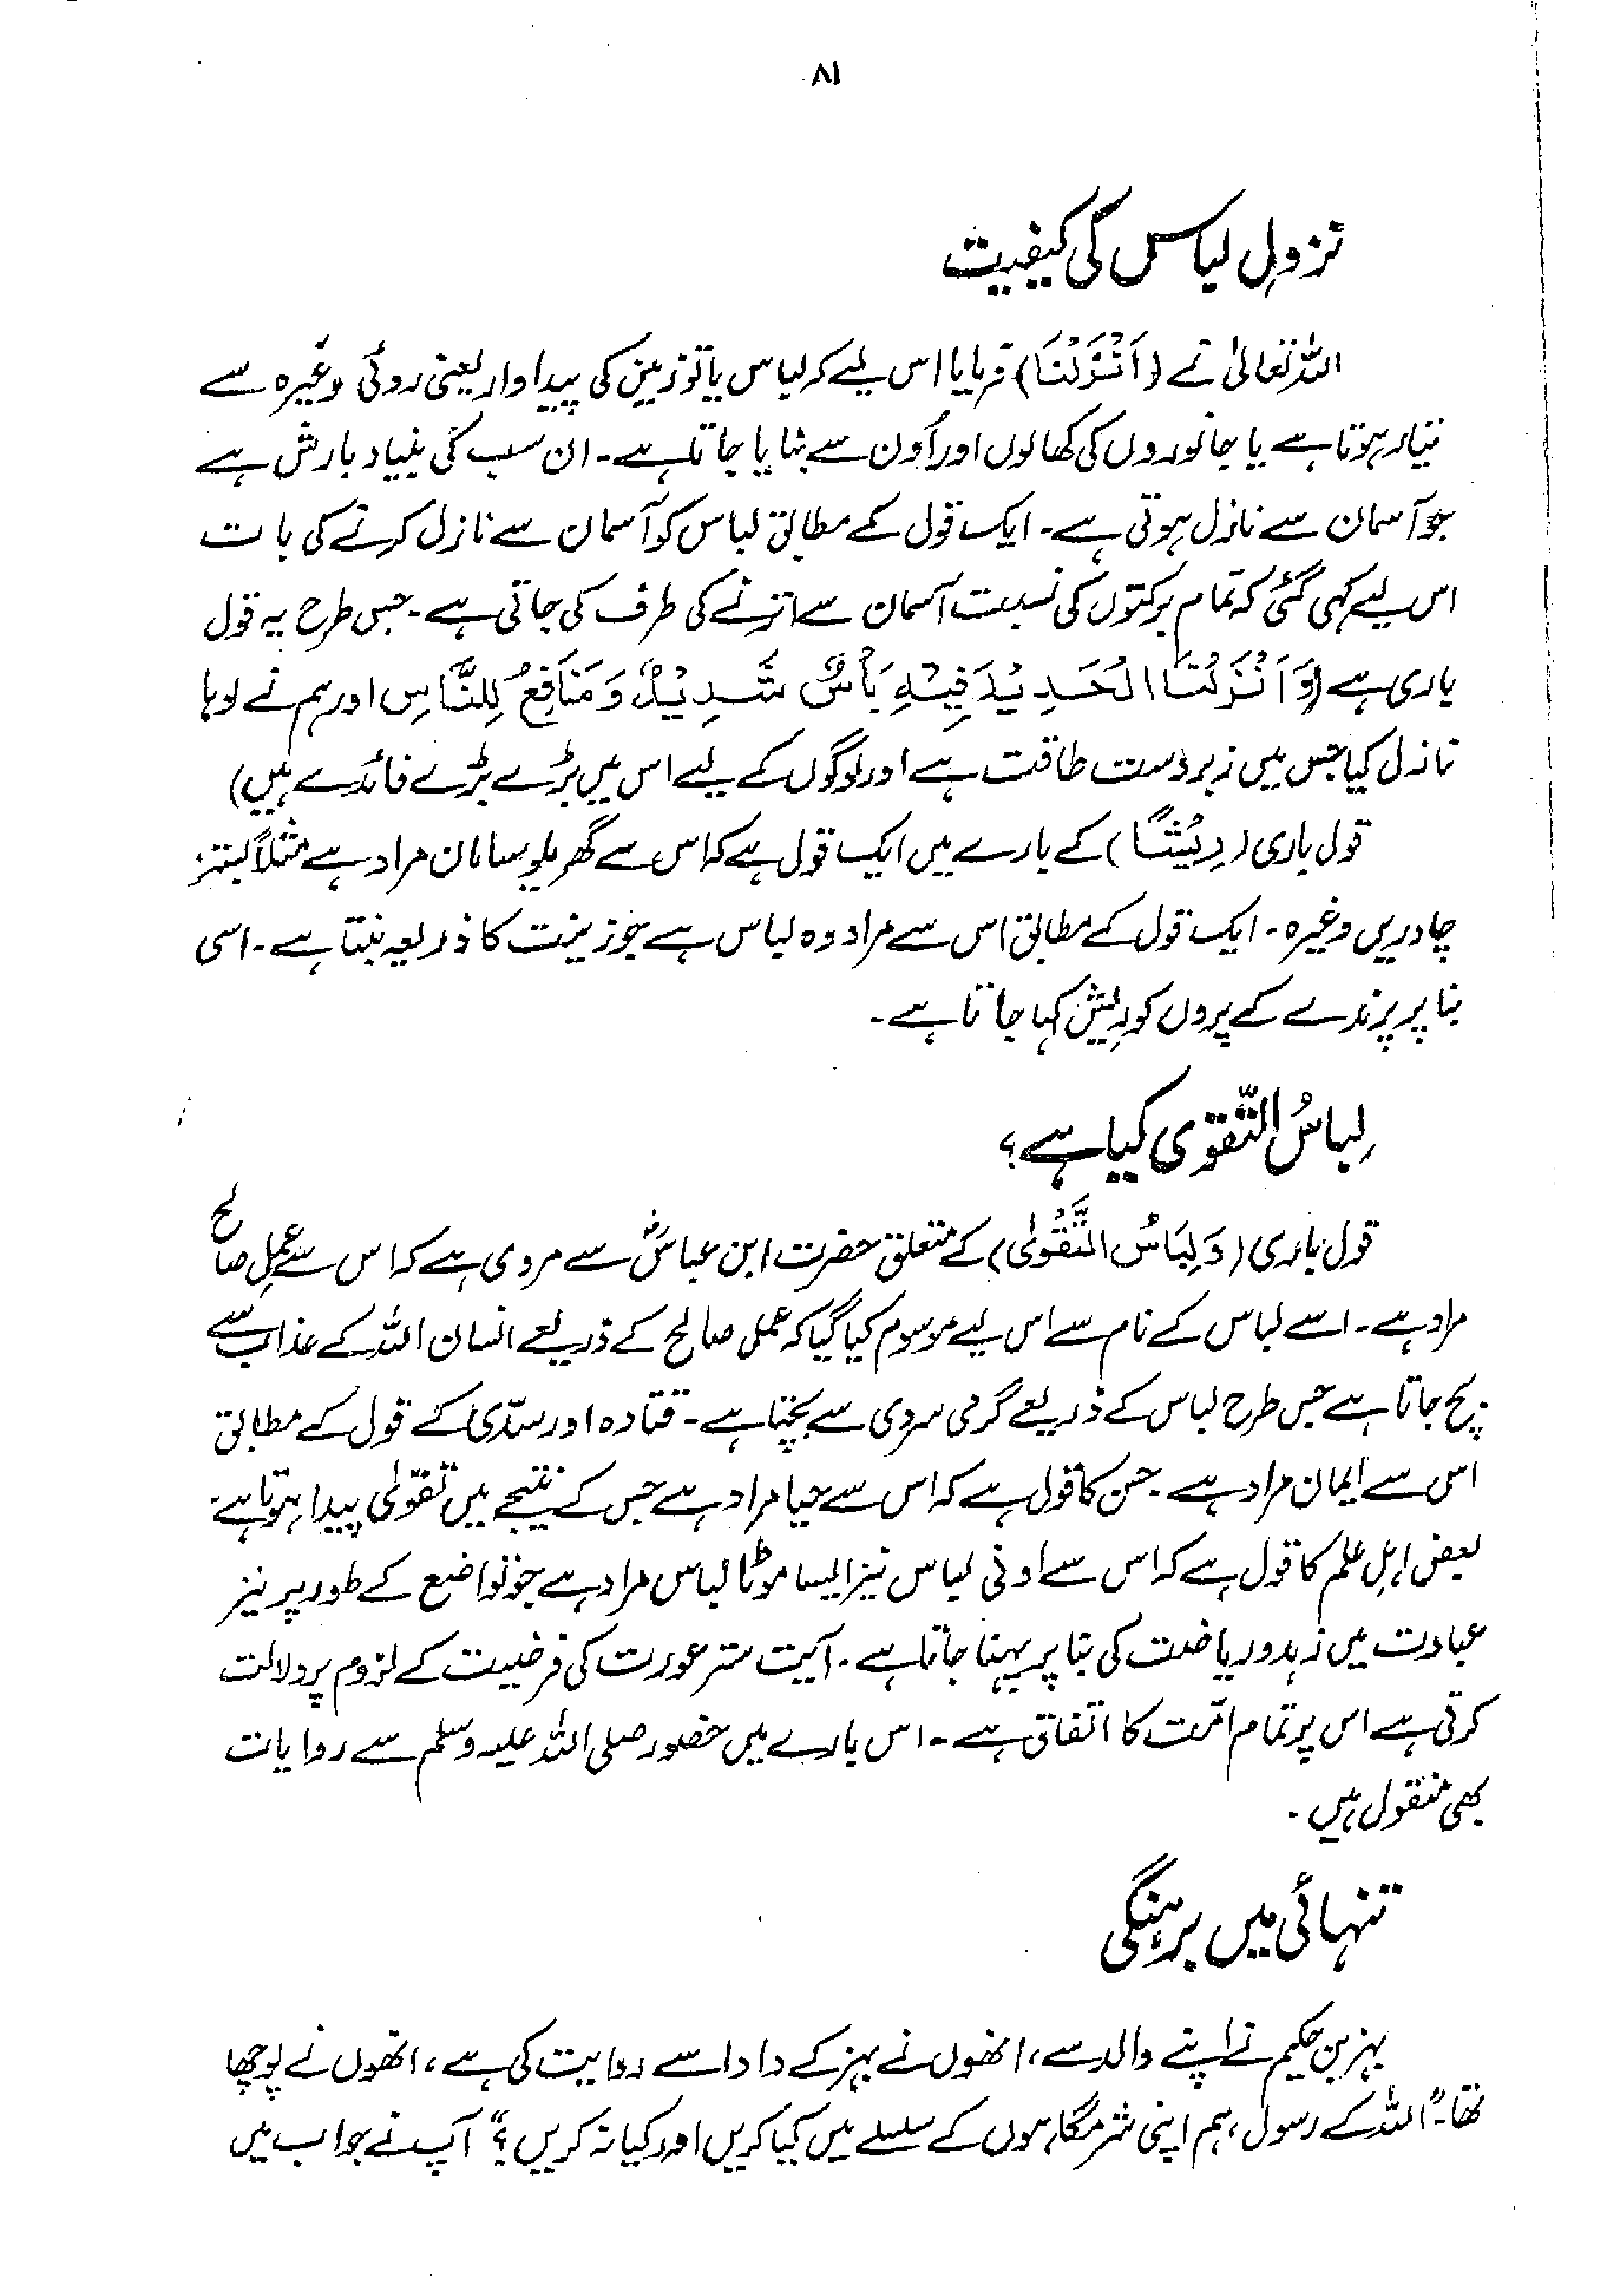 ۸۱
نزولِ لباس کی کیفیت
اللہ تعالیٰ نے (اَنْزَلْنَا) فرمایا اس لیے کہ لباس یا تو زمین کی پیداوار یعنی روئی وغیرہ سے
تیار ہوتا ہے یا جانوروں کی کھالوں اور اُون سے بنایا جاتا ہے۔ ان سب کی بنیاد بارش ہے
جو آسمان سے نازل ہوتی ہے۔ ایک قول کے مطابق لباس کو آسمان سے نازل کرنے کی بات
اس لیے کہی گئی کہ تمام برکتوں کی نسبت آسمان سے اترنے کی طرف کی جاتی ہے۔ جس طرح یہ قول
باری ہے (وَاَنْزَلْنَا الْحَدِيْدَ فِيْهِ بَأْسٌ شَدِيْدٌ وَمَنَافِعُ لِلنَّاسِ اور ہم نے لوہا
نازل کیا جس میں زبردست طاقت ہے اور لوگوں کے لیے اس میں بڑے بڑے فائدے ہیں)
قول باری (رِيْشًا) کے بارے میں ایک قول ہے کہ اس سے گھریلو سامان مراد ہے مثلاً بستر
چادریں وغیرہ۔ ایک قول کے مطابق اس سے مراد وہ لباس ہے جو زینت کا ذریعہ بنتا ہے۔ اسی
بنا پر پرندے کے پروں کو رِیش کہا جاتا ہے۔
لِباسُ التَّقوٰی کیا ہے؟
قول باری (وَلِبَاسُ التَّقْوٰى) کے متعلق حضرت ابن عباسؓ سے مروی ہے کہ اس سے عملِ صالح
مراد ہے۔ اسے لباس کے نام سے اس لیے موسوم کیا گیا کہ عمل صالح کے ذریعے انسان اللہ کے عذاب سے
بچ جاتا ہے جس طرح لباس کے ذریعے گرمی سردی سے بچتا ہے۔ قتادہ اور سدّی کے قول کے مطابق
اس سے ایمان مراد ہے۔ حسن کا قول ہے کہ اس سے حیا مراد ہے جس کے نتیجے میں تقویٰ پیدا ہوتا ہے۔
بعض اہلِ علم کا قول ہے کہ اس سے اونی لباس نیز ایسا موٹا لباس مراد ہے جو تواضع کے طور پر نیز
عبادت میں زہد و ریاضت کی بنا پر پہنا جاتا ہے۔ آیت ستر عورت کی فرضیت کے لزوم پر دلالت
کرتی ہے اس پر تمام امّت کا اتفاق ہے۔ اس بارے میں حضور صلی اللہ علیہ وسلم سے روایات
بھی منقول ہیں۔
تنہائی میں برہنگی
بہز بن حکیم نے اپنے والد سے، انھوں نے بہز کے دادا سے روایت کی ہے، انھوں نے پوچھا
تھا۔ "اللہ کے رسول، ہم اپنی شرمگاہوں کے سلسلے میں کیا کریں اور کیا نہ کریں؟" آپ نے جواب میں